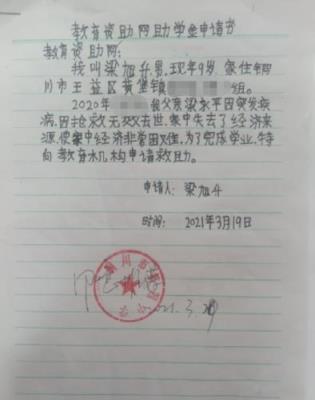 教育资助网助学金申请书
教育资助网:
我叫梁旭升,男,现年9岁,家住铜
川市王益区黄堡镇 组。
2020年 父亲梁永平因突发疾
病,因抢救无效去世,家中失去了经济来
源,使家中经济非常困难,为了完成学业,特
向教育机构申请救助。
申请人: 梁旭升
时间: 2021年3月19日